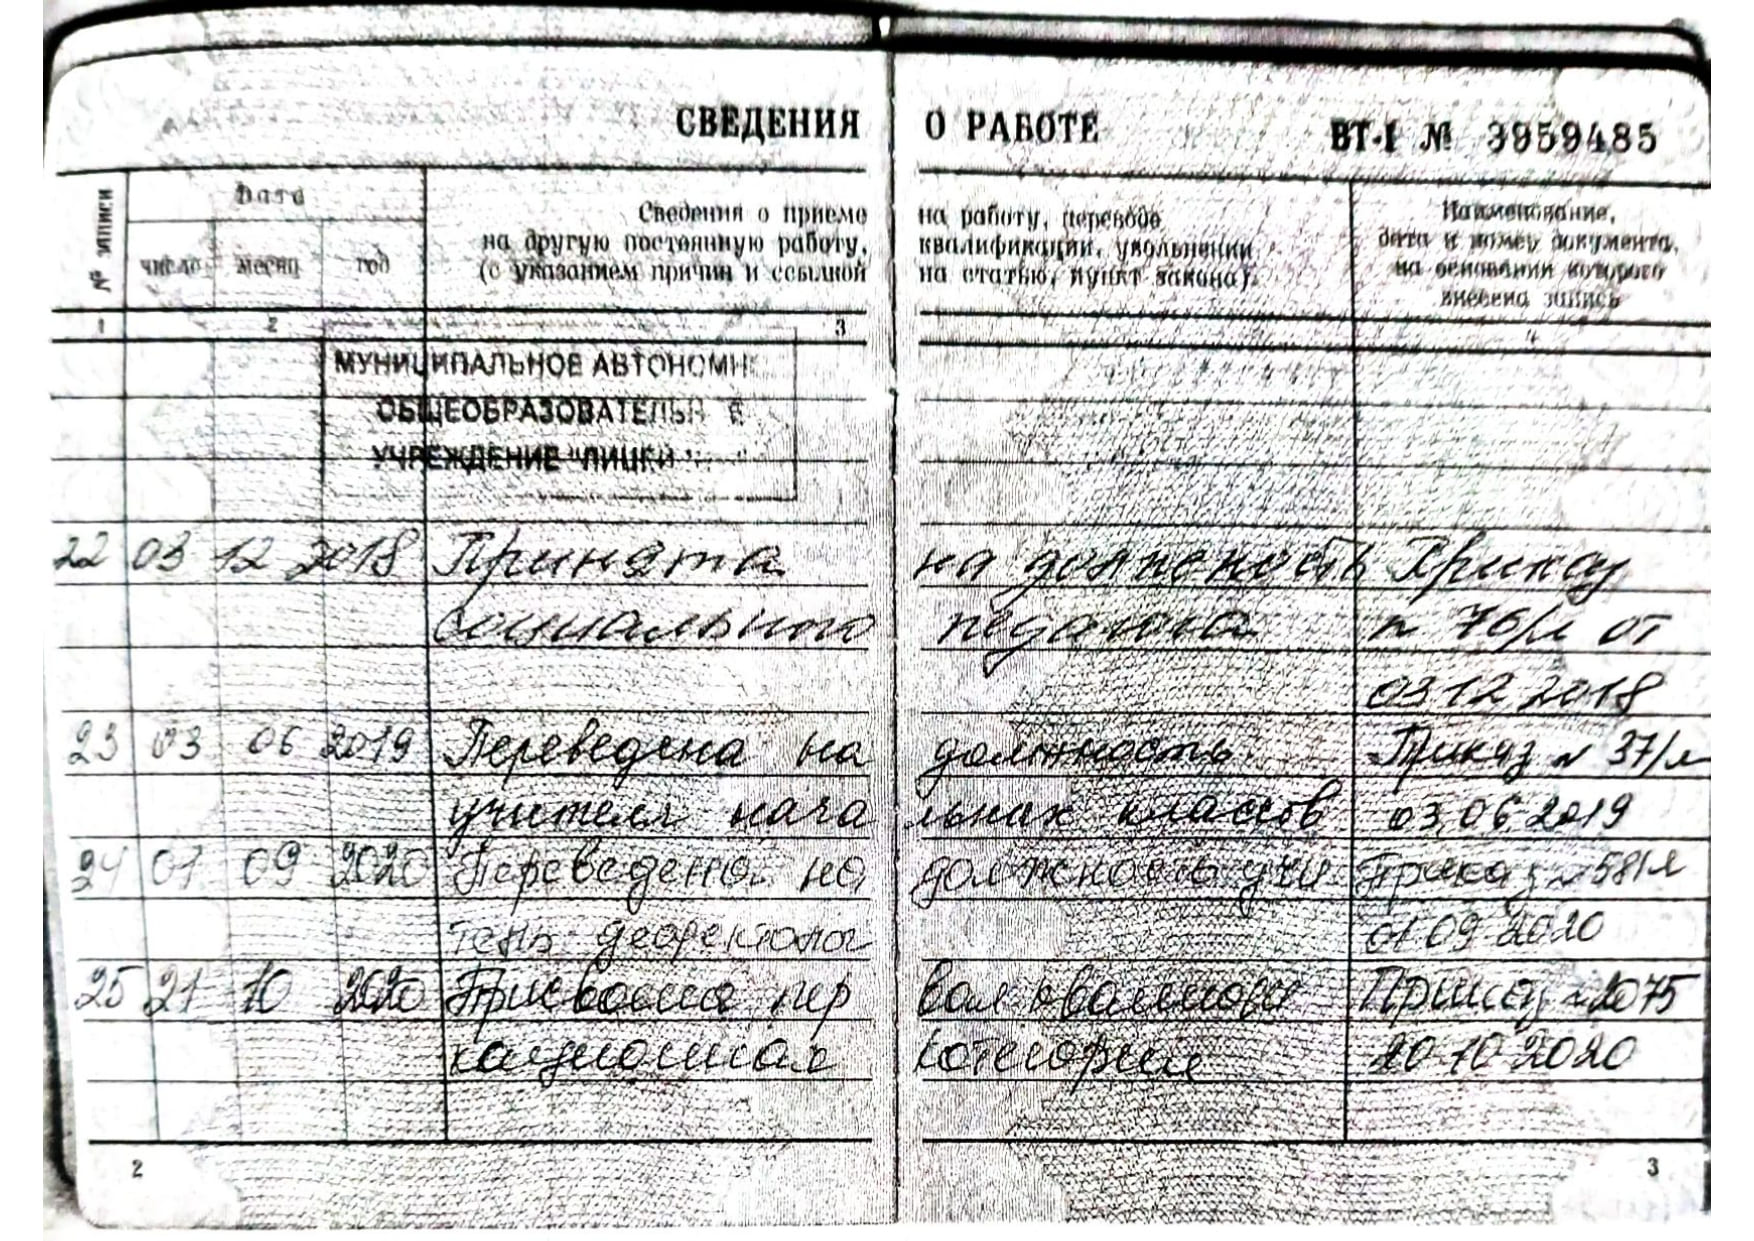 СВЕДЕНИЯ О РАБОТЕ ВТ-I № 3959485
№ записи
Дата
число месяц год
Сведения о приеме на работу, переводе
на другую постоянную работу, квалификации, увольнении
(с указанием причин и ссылкой на статью, пункт закона).
Наименование,
дата и номер документа,
на основании которого
внесена запись
1 2 3 4
МУНИЦИПАЛЬНОЕ АВТОНОМН
ОБЩЕОБРАЗОВАТЕЛЬН Е
УЧРЕЖДЕНИЕ "ЛИЦЕЙ
22 03 12 2018 Принята на должность Приказ
социального педагога № 76/л от
03 12 2018
23 03 06 2019 Переведена на должность Приказ № 37/л
учителя нача льных классов 03.06.2019
24 01 09 2020 Переведена на должность учи Приказ № 58/л
тель дефектолог 01 09 2020
25 21 10 2020 Присвоена пер вая квалифи Приказ № 2075
кационная категория 20 10 2020
2 3